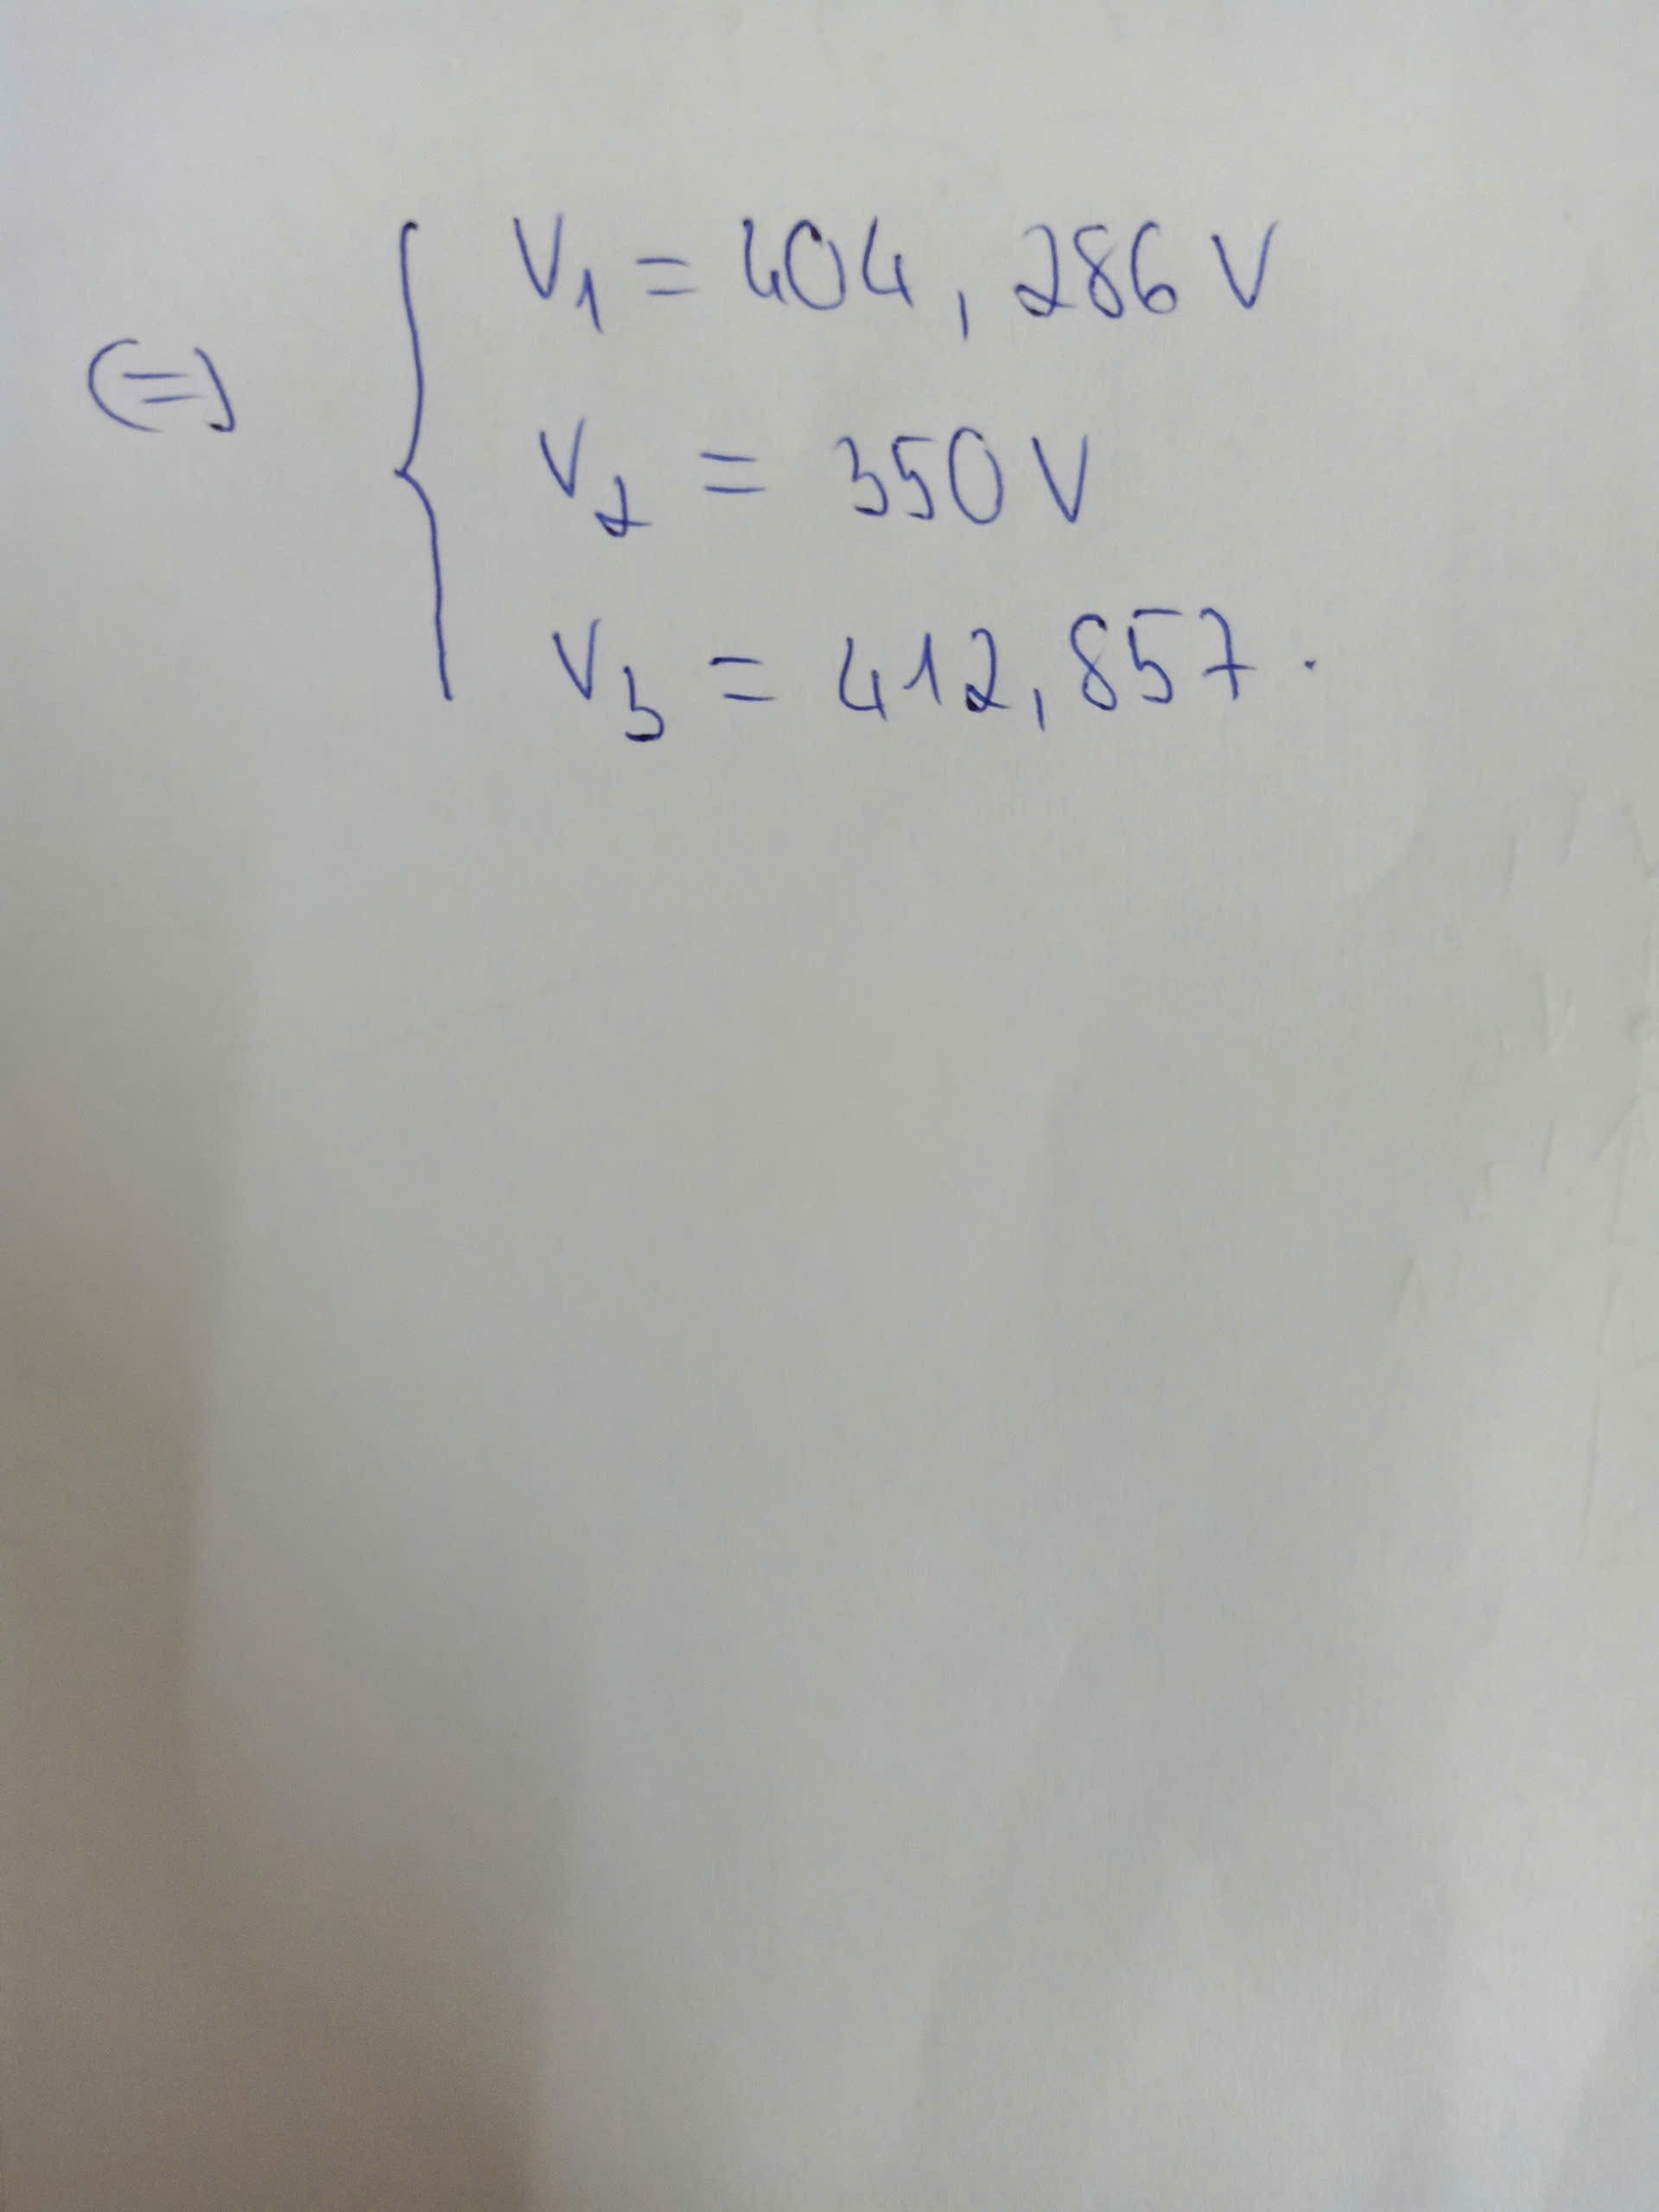 V₁ = 404,286 V
(=) { V₂ = 350 V
V₃ = 412,857.